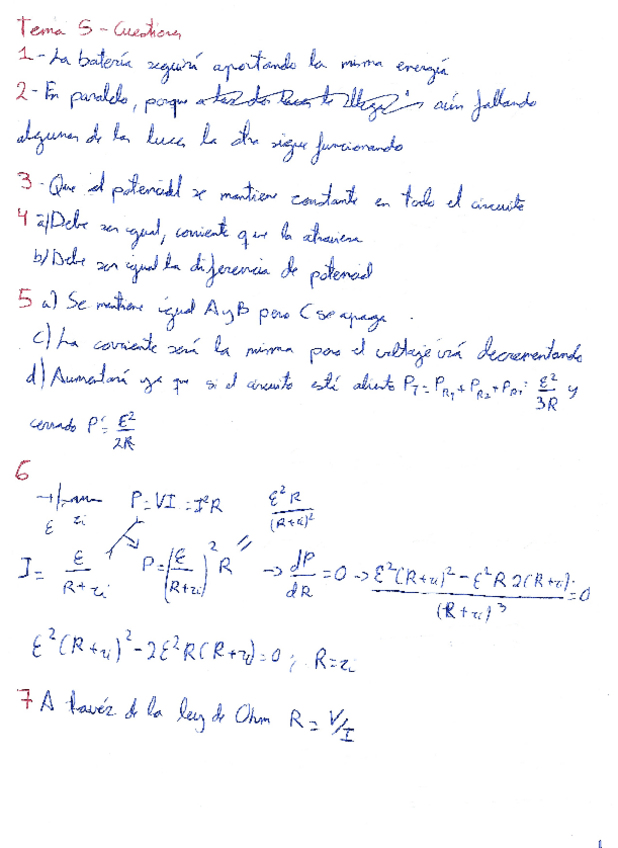 Tema 5 - Cuestiones
1 - La batería seguirá aportando la misma energía
2 - En paralelo, porque aún fallando
algunas de las luces la otra sigue funcionando
3 - Que el potencial se mantiene constante en todo el circuito
4 a) Debe ser igual, corriente que la atraviesa
b) Debe ser igual la diferencia de potencial
5 a) Se mantiene igual A y B pero C se apaga
c) La corriente será la misma pero el voltaje irá decrementando
d) Aumentará ya que si el circuito está abierto P_T = P_R1 + P_R2 + P_R3 = ε²/3R y
cerrado P' = ε²/2R
6
ε ri P = VI = I²R ε²R/(R+ri)²
I = ε/(R+ri) P = (ε/(R+ri))² R → dP/dR = 0 → (ε²(R+ri)² - ε²R 2(R+ri))/(R+ri)³ = 0
ε²(R+ri)² - 2ε²R(R+ri) = 0 ; R = ri
7 A través de la ley de Ohm R = V/I
1